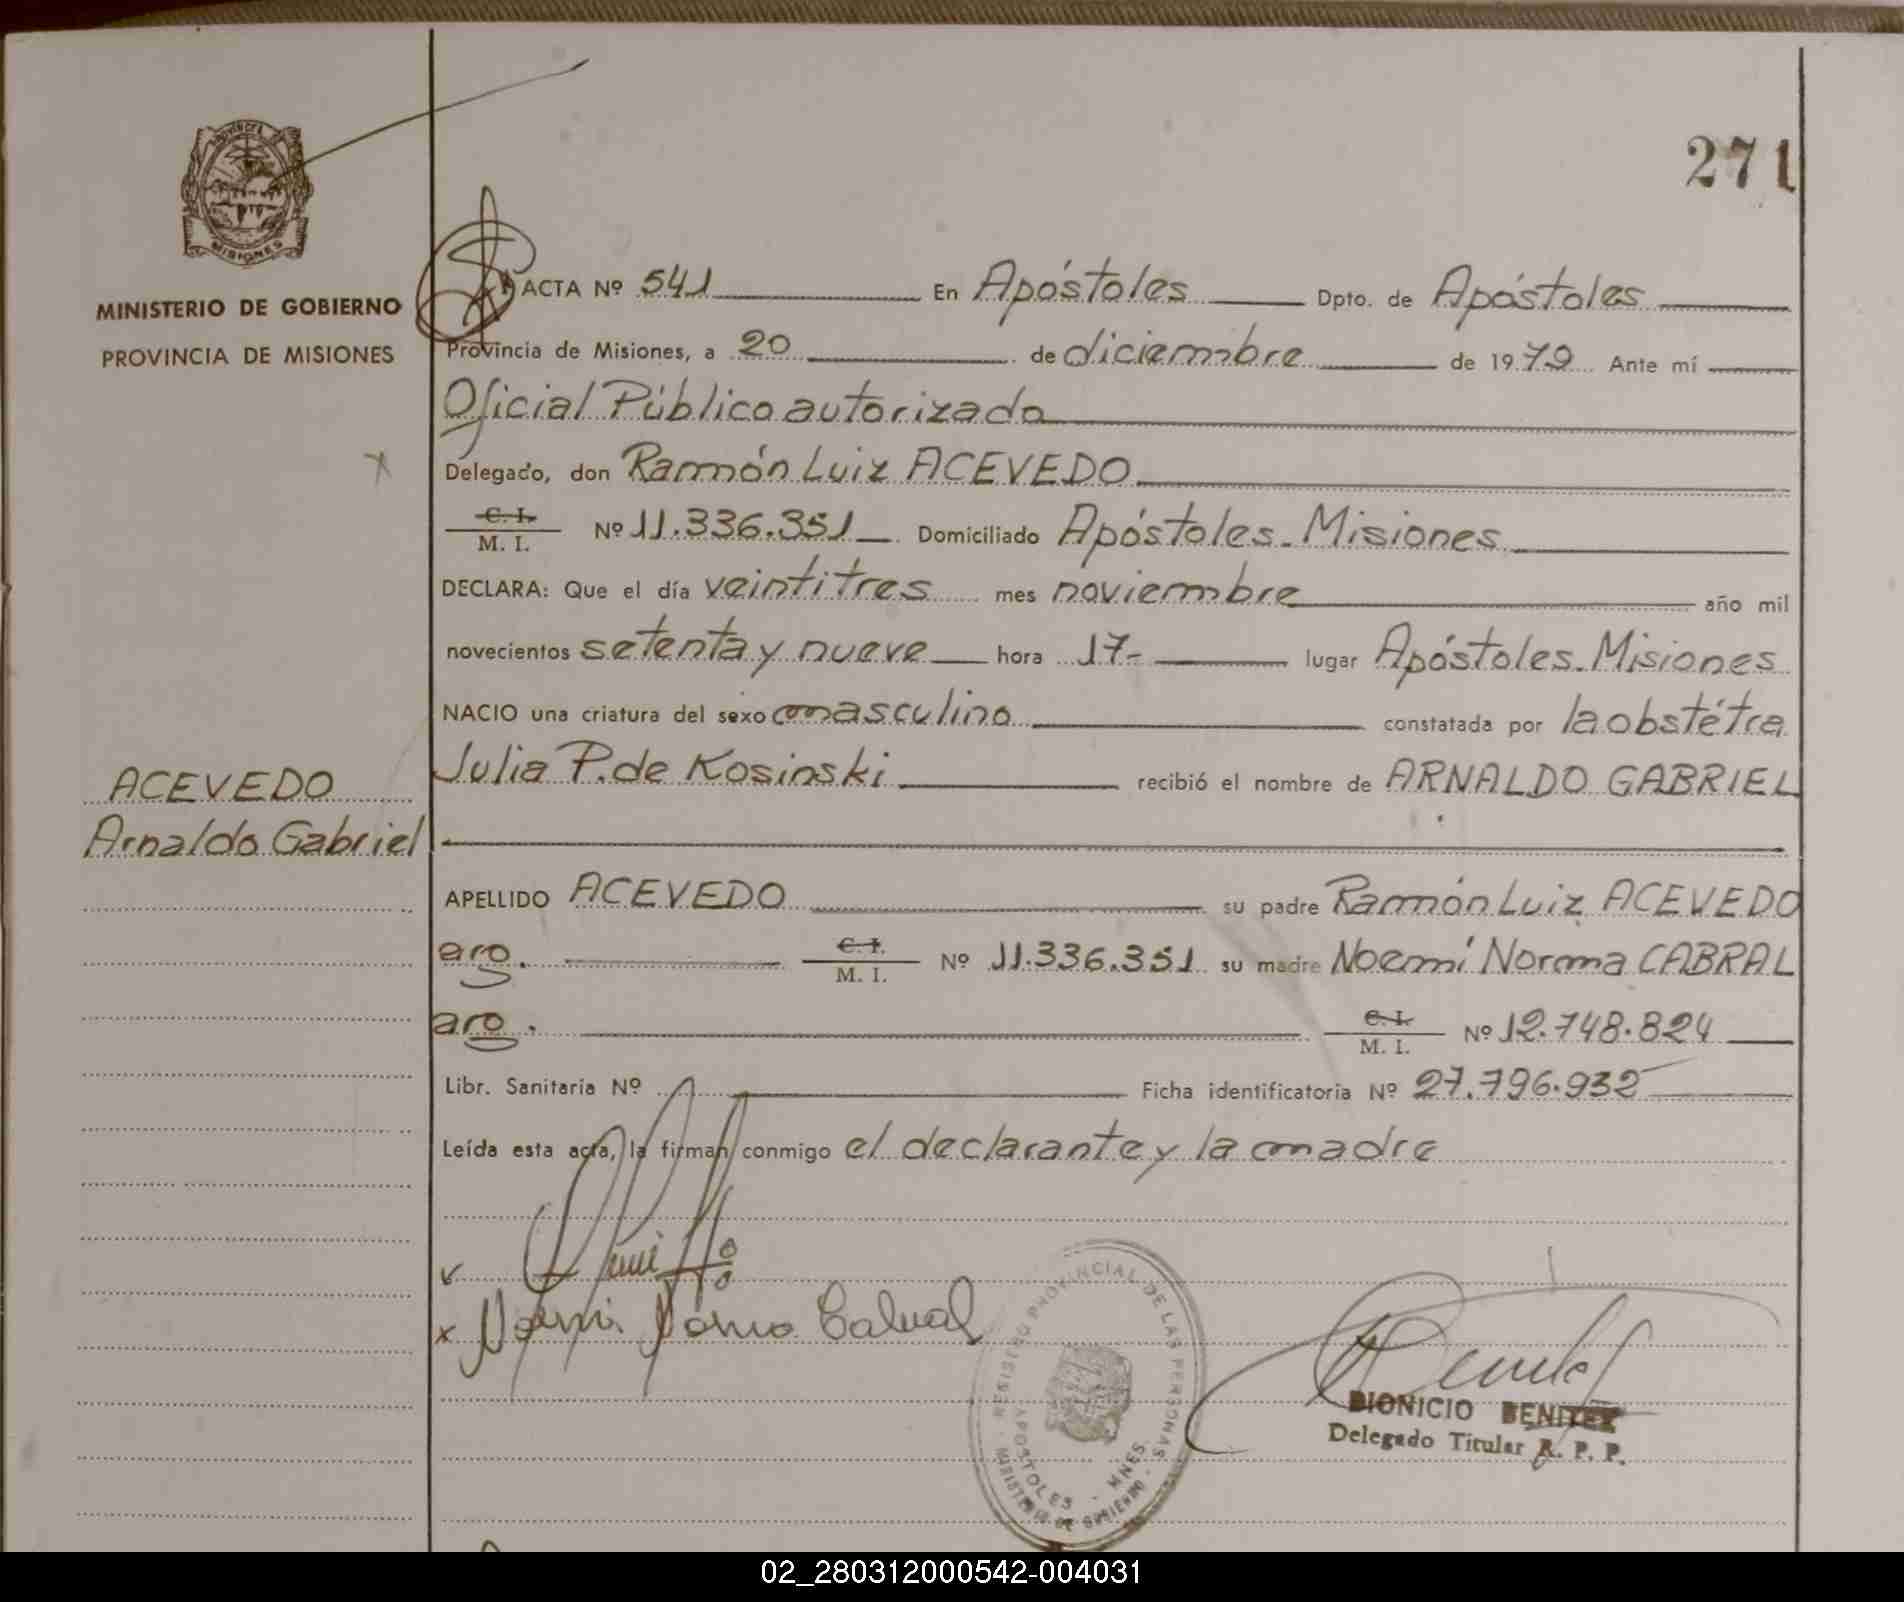 271
MINISTERIO DE GOBIERNO
PROVINCIA DE MISIONES
ACTA Nº 541 En Apóstoles Dpto. de Apóstoles
Provincia de Misiones, a 20 de diciembre de 1979 Ante mí
Oficial Público autorizado
Delegado, don Ramón Luiz ACEVEDO
C. I.
M. I. Nº 11.336.351 Domiciliado Apóstoles - Misiones
DECLARA: Que el día veintitres mes noviembre año mil
novecientos setenta y nueve hora 17- lugar Apóstoles - Misiones
NACIO una criatura del sexo masculino constatada por la obstétra
Julia P. de Kosinski recibió el nombre de ARNALDO GABRIEL
ACEVEDO
Arnaldo Gabriel
APELLIDO ACEVEDO su padre Ramón Luiz ACEVEDO
arg. C. I.
M. I. Nº 11.336.351 su madre Noemí Norma CABRAL
arg. C. I.
M. I. Nº 12.748.824
Libr. Sanitaria Nº Ficha identificatoria Nº 27.796.932
Leída esta acta, la firman conmigo el declarante y la madre
x Noemi Norma Cabral
REGISTRO PROVINCIAL DE LAS PERSONAS
APOSTOLES - MNES.
MINISTERIO DE GOBIERNO
DIONICIO BENITEZ
Delegado Titular R. P. P.
02_280312000542-004031